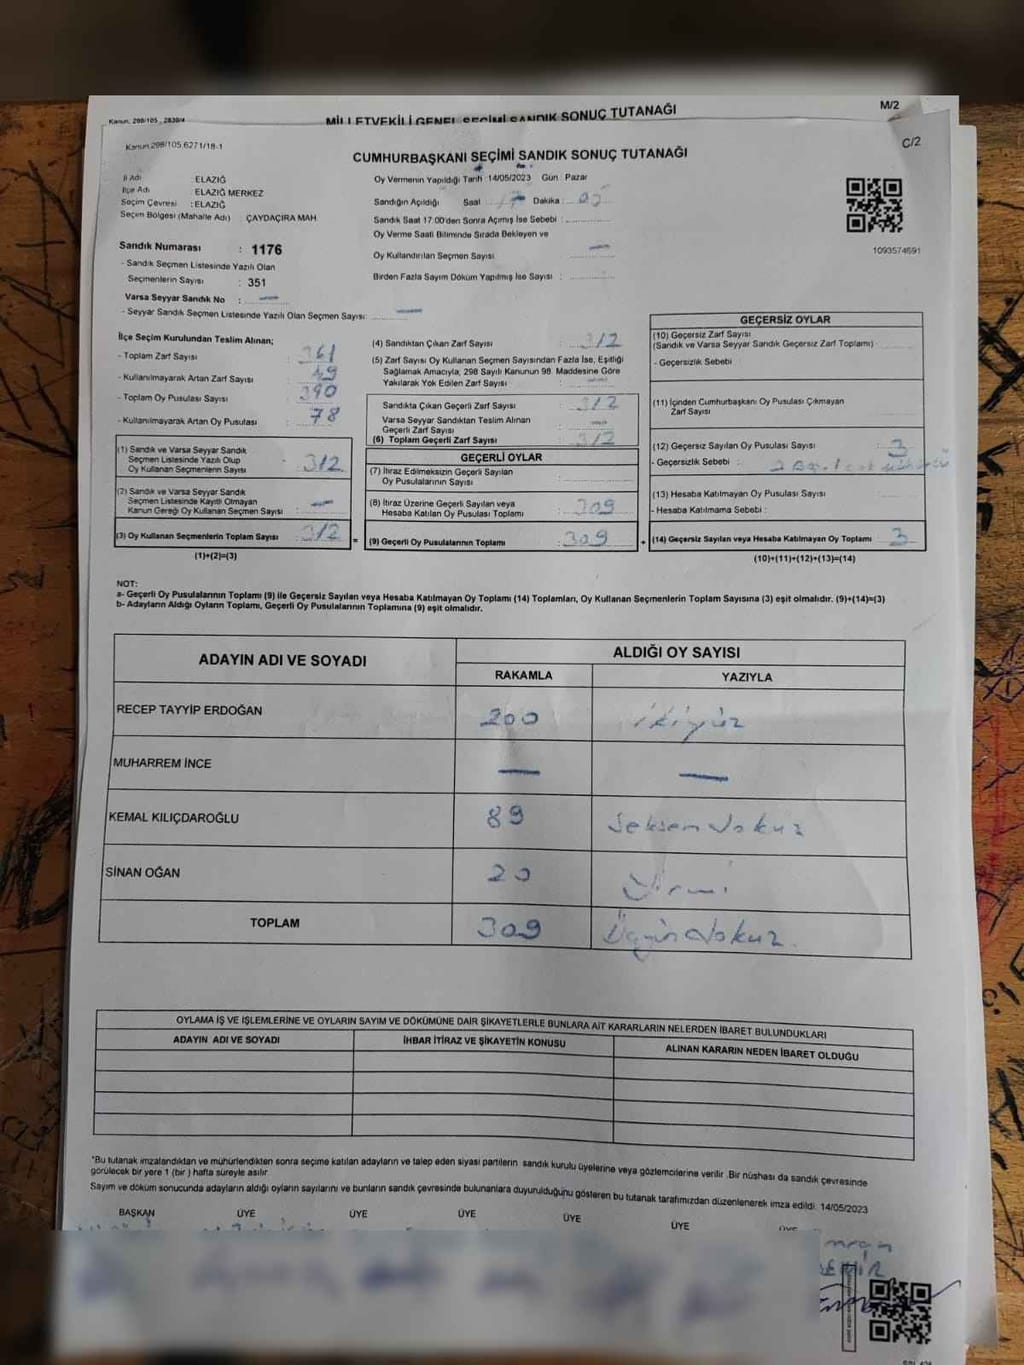 M/2
Kanun. 298/105, 2839/4
MİLLETVEKİLİ GENEL SEÇİMİ SANDIK SONUÇ TUTANAĞI
C/2
Kanun.298/105.6271/18-1
CUMHURBAŞKANI SEÇİMİ SANDIK SONUÇ TUTANAĞI
İl Adı : ELAZIĞ
İlçe Adı : ELAZIĞ MERKEZ
Seçim Çevresi : ELAZIĞ
Seçim Bölgesi (Mahalle Adı) : ÇAYDAÇIRA MAH.
Sandık Numarası : 1176
- Sandık Seçmen Listesinde Yazılı Olan
Seçmenlerin Sayısı : 351
Varsa Seyyar Sandık No : —
- Seyyar Sandık Seçmen Listesinde Yazılı Olan Seçmen Sayısı: —
Oy Vermenin Yapıldığı Tarih 14/05/2023 Gün Pazar
Sandığın Açıldığı Saat 17 Dakika : 05
Sandık Saat 17:00'den Sonra Açımış İse Sebebi :
Oy Verme Saati Bitiminde Sırada Bekleyen ve
Oy Kullandırılan Seçmen Sayısı —
Birden Fazla Sayım Döküm Yapılmış İse Sayısı :
1093574691
İlçe Seçim Kurulundan Teslim Alınan;
- Toplam Zarf Sayısı : 361
- Kullanılmayarak Artan Zarf Sayısı : 49
- Toplam Oy Pusulası Sayısı : 390
- Kullanılmayarak Artan Oy Pusulası : 78
(1) Sandık ve Varsa Seyyar Sandık
Seçmen Listesinde Yazılı Olup
Oy Kullanan Seçmenlerin Sayısı : 312
(2) Sandık ve Varsa Seyyar Sandık
Seçmen Listesinde Kayıtlı Olmayan
Kanun Gereği Oy Kullanan Seçmen Sayısı : —
(3) Oy Kullanan Seçmenlerin Toplam Sayısı : 312 =
(1)+(2)=(3)
(4) Sandıktan Çıkan Zarf Sayısı : 312
(5) Zarf Sayısı Oy Kullanan Seçmen Sayısından Fazla İse, Eşitliği
Sağlamak Amacıyla; 298 Sayılı Kanunun 98. Maddesine Göre
Yakılarak Yok Edilen Zarf Sayısı : —
Sandıkta Çıkan Geçerli Zarf Sayısı : 312
Varsa Seyyar Sandıktan Teslim Alınan
Geçerli Zarf Sayısı : —
(6) Toplam Geçerli Zarf Sayısı : 312
GEÇERLİ OYLAR
(7) İtiraz Edilmeksizin Geçerli Sayılan
Oy Pusulalarının Sayısı :
(8) İtiraz Üzerine Geçerli Sayılan veya
Hesaba Katılan Oy Pusulası Toplamı : 309
(9) Geçerli Oy Pusulalarının Toplamı : 309 +
GEÇERSİZ OYLAR
(10) Geçersiz Zarf Sayısı
(Sandık ve Varsa Seyyar Sandık Geçersiz Zarf Toplamı) :
- Geçersizlik Sebebi :
(11) İçinden Cumhurbaşkanı Oy Pusulası Çıkmayan
Zarf Sayısı :
(12) Geçersiz Sayılan Oy Pusulası Sayısı : 3
- Geçersizlik Sebebi :
(13) Hesaba Katılmayan Oy Pusulası Sayısı :
- Hesaba Katılmama Sebebi :
(14) Geçersiz Sayılan veya Hesaba Katılmayan Oy Toplamı : 3
(10)+(11)+(12)+(13)=(14)
NOT:
a- Geçerli Oy Pusulalarının Toplamı (9) ile Geçersiz Sayılan veya Hesaba Katılmayan Oy Toplamı (14) Toplamları, Oy Kullanan Seçmenlerin Toplam Sayısına (3) eşit olmalıdır. (9)+(14)=(3)
b- Adayların Aldığı Oyların Toplamı, Geçerli Oy Pusulalarının Toplamına (9) eşit olmalıdır.
ADAYIN ADI VE SOYADI
ALDIĞI OY SAYISI
RAKAMLA YAZIYLA
RECEP TAYYİP ERDOĞAN 200 ikiyüz
MUHARREM İNCE — —
KEMAL KILIÇDAROĞLU 89 Seksen dokuz
SİNAN OĞAN 20 Yirmi
TOPLAM 309 Üçyüzdokuz.
OYLAMA İŞ VE İŞLEMLERİNE VE OYLARIN SAYIM VE DÖKÜMÜNE DAİR ŞİKAYETLERLE BUNLARA AİT KARARLARIN NELERDEN İBARET BULUNDUKLARI
ADAYIN ADI VE SOYADI İHBAR İTİRAZ VE ŞİKAYETİN KONUSU ALINAN KARARIN NEDEN İBARET OLDUĞU
*Bu tutanak imzalandıktan ve mühürlendikten sonra seçime katılan adayların ve talep eden siyasi partilerin sandık kurulu üyelerine veya gözlemcilerine verilir. Bir nüshası da sandık çevresinde
görülecek bir yere 1 (bir) hafta süreyle asılır.
Sayım ve döküm sonucunda adayların aldığı oyların sayılarını ve bunların sandık çevresinde bulunanlara duyurulduğunu gösteren bu tutanak tarafımızdan düzenlenerek imza edildi. 14/05/2023
BAŞKAN ÜYE ÜYE ÜYE ÜYE ÜYE ÜYE